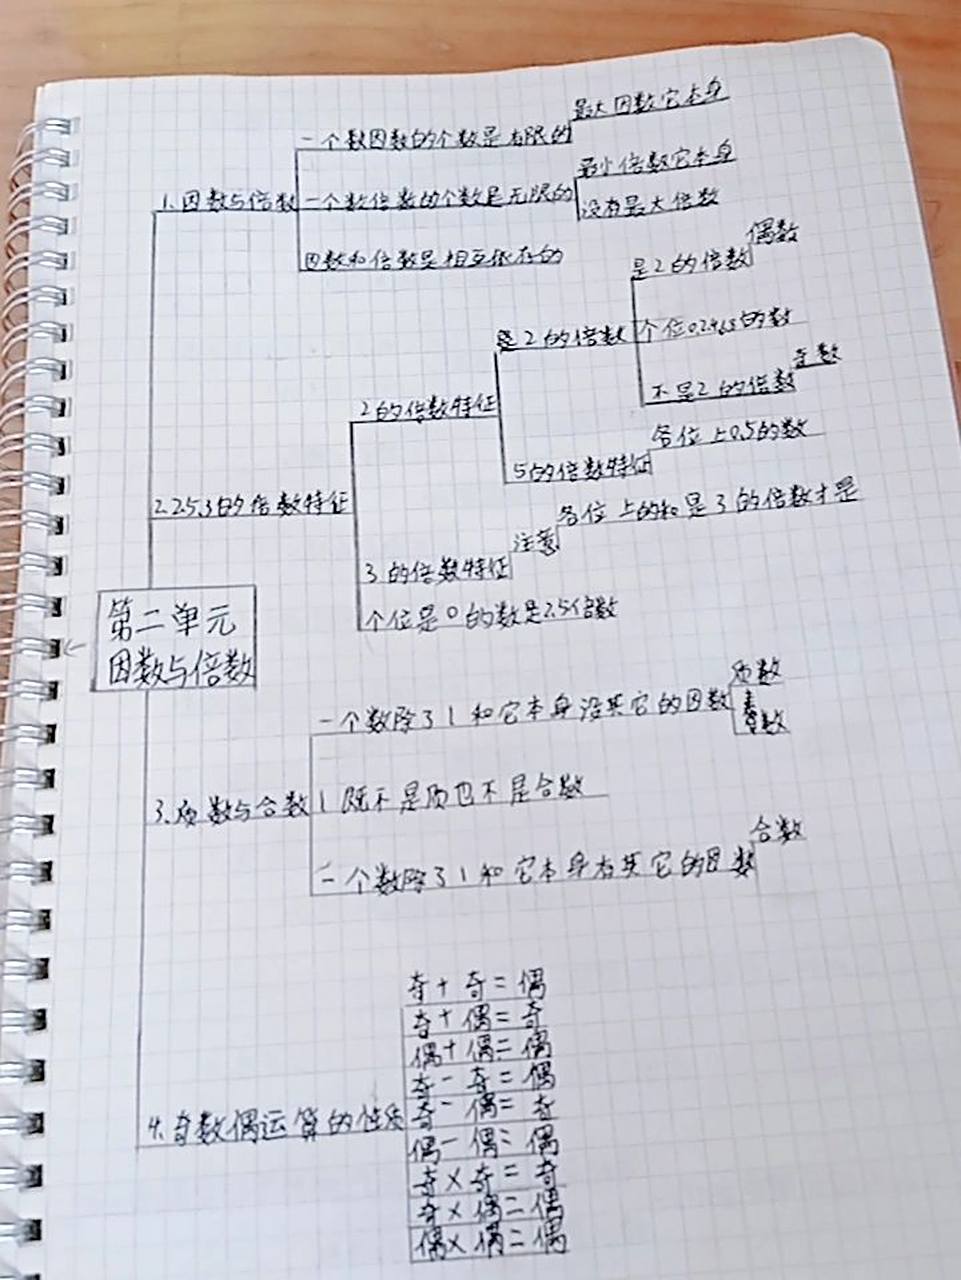 第二单元
因数与倍数
1.因数与倍数
一个数因数的个数是有限的
最大因数它本身
一个数倍数的个数是无限的
最小倍数它本身
没有最大倍数
因数和倍数是相互依存的
2.2.5.3的倍数特征
2的倍数特征
是2的倍数
是2的倍数
偶数
个位0.2.4.6.8的数
不是2的倍数
奇数
5的倍数特征
各位上0.5的数
3的倍数特征
注意
各位上的和是3的倍数才是
个位是0的数是2.5倍数
3.质数与合数
一个数除了1和它本身没其它的因数
质数
素数
1既不是质也不是合数
一个数除了1和它本身有其它的因数
合数
4.奇数偶运算的性质
奇+奇=偶
奇+偶=奇
偶+偶=偶
奇-奇=偶
奇-偶=奇
偶-偶=偶
奇×奇=奇
奇×偶=偶
偶×偶=偶